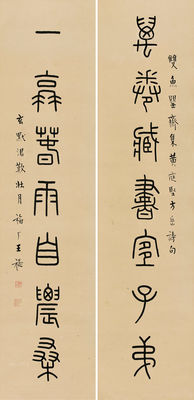 雙魚罌齋集黃庭堅方岳詩句
萬卷藏書宜子弟
一春雨自農桑
玄黓涒歎壯月福厂王禔